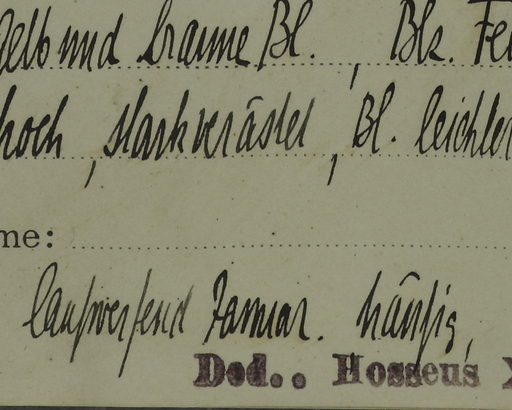 gelb und braune Bl. , Blz. Fe
hoch , stark verästet , Bl. leichter
me:
laubwerfend Januar. häufig,
Ded.. Hosseus